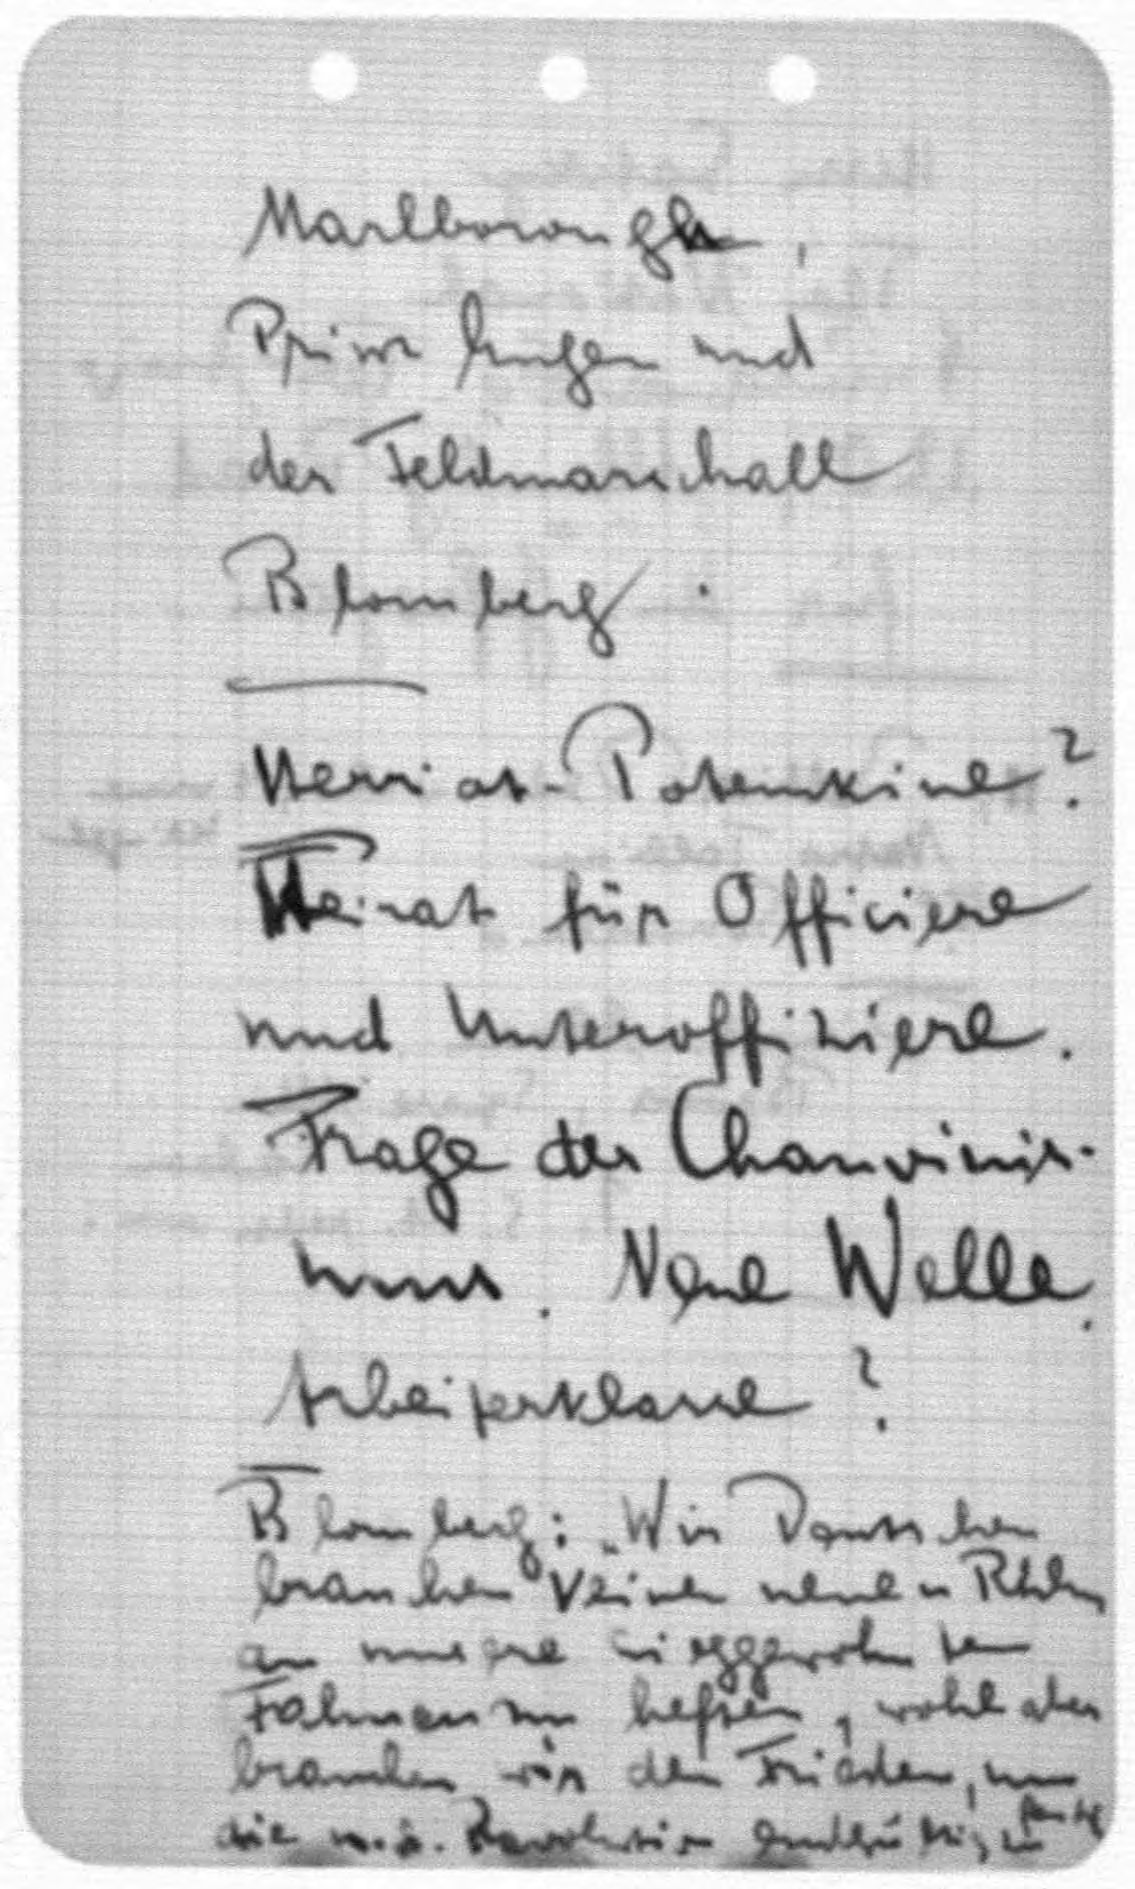 Marlborough,
Prinz Eugen und
der Feldmarschall
Blomberg.
Herriot-Potemkine?
Heirat für Officiere
und Unteroffiziere.
Frage des Chauvinis-
mus. Neue Welle.
Arbeiterklasse?
Blomberg: „Wir Deutschen
brauchen keinen neuen Ruhm
an unsere sieggewohnten
Fahnen zu heften, wohl aber
brauchen wir den Frieden, um
die n.s. Revolution endgültig zu